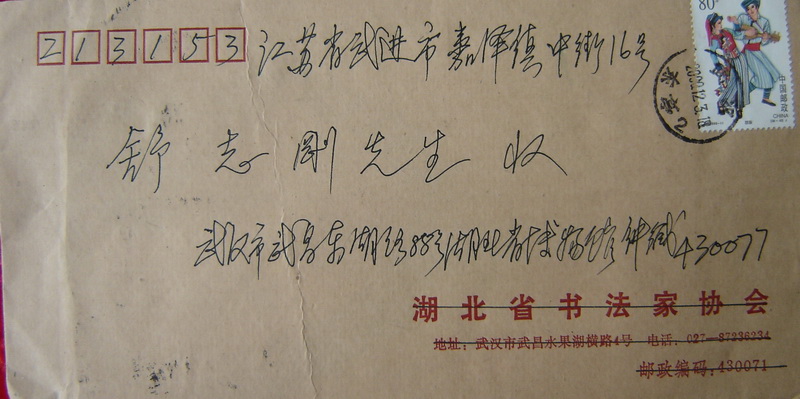 213153 江苏省武进市嘉泽镇中街16号
舒志刚先生 收
武汉市武昌东湖路88号湖北省博物馆钟缄430077
湖北省书法家协会
地址：武汉市武昌水果湖横路4号 电话：027—87236234
邮政编码：430071
80分
中国邮政
CHINA